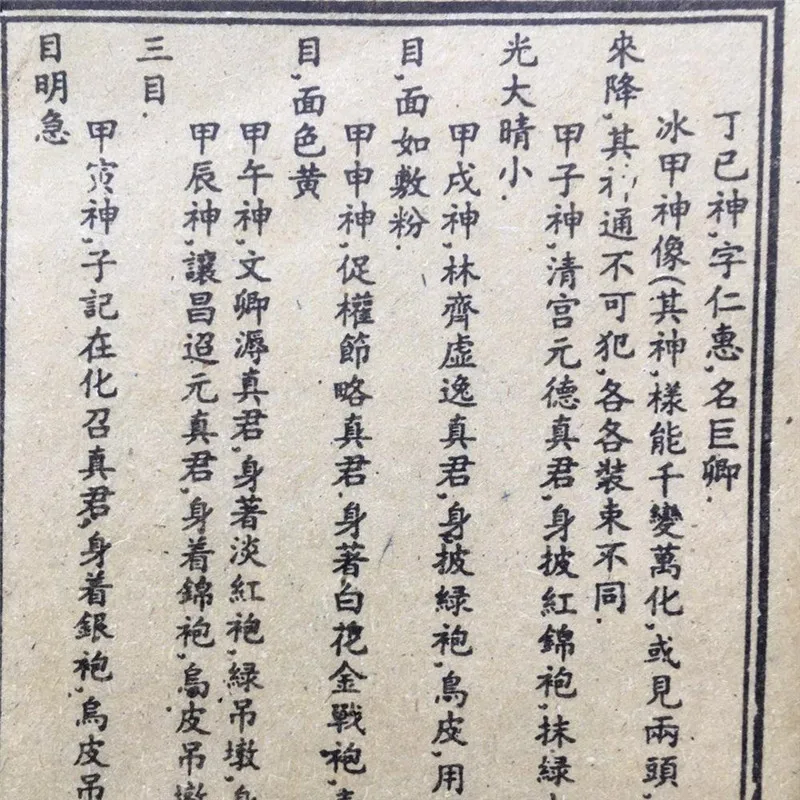 丁巳神,字仁惠,名巨卿.
冰甲神像(其神,樣能千變萬化,或見兩頭,
來降,其 通不可犯,各各裝束不同.
甲子神,清宮元德真君,身披紅錦袍,抹綠
光大睛小.
甲戌神,林齊虛逸真君,身披綠袍,烏皮,用
目,面如敷粉.
甲申神,促權節略真君.身著白花金戰袍,
目,面色黃
甲午神,文卿溽真君,身著淡紅袍,綠吊墩,身
甲辰神,讓昌迢元真君,身着錦袍,烏皮吊墩
三目.
甲寅神,子記在化召真君,身着銀袍,烏皮吊
目明急